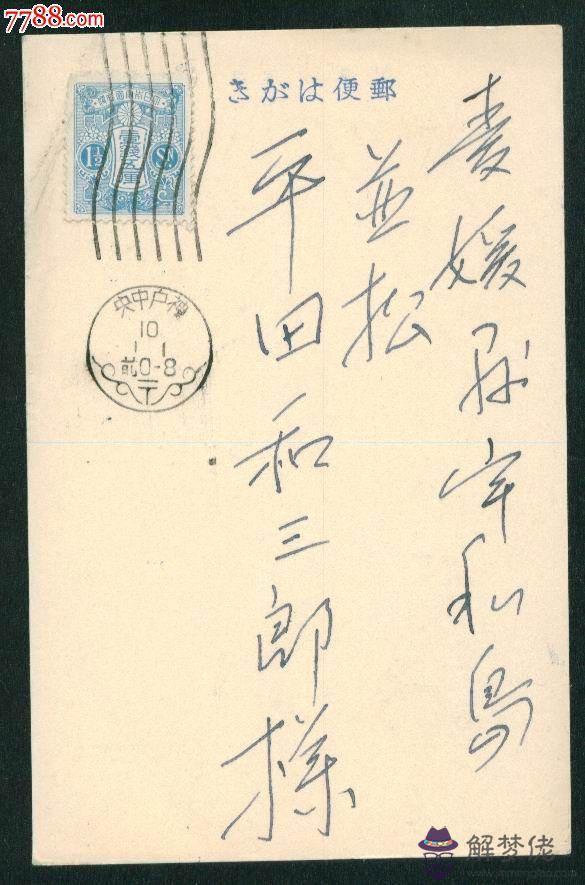 7788.com
郵便はがき
大日本帝國郵便
壹錢五厘
1½ SN
神戸中央
10
1 1
前0-8
〒
愛媛縣宇和島
並松
平田和三郎様
解梦佬